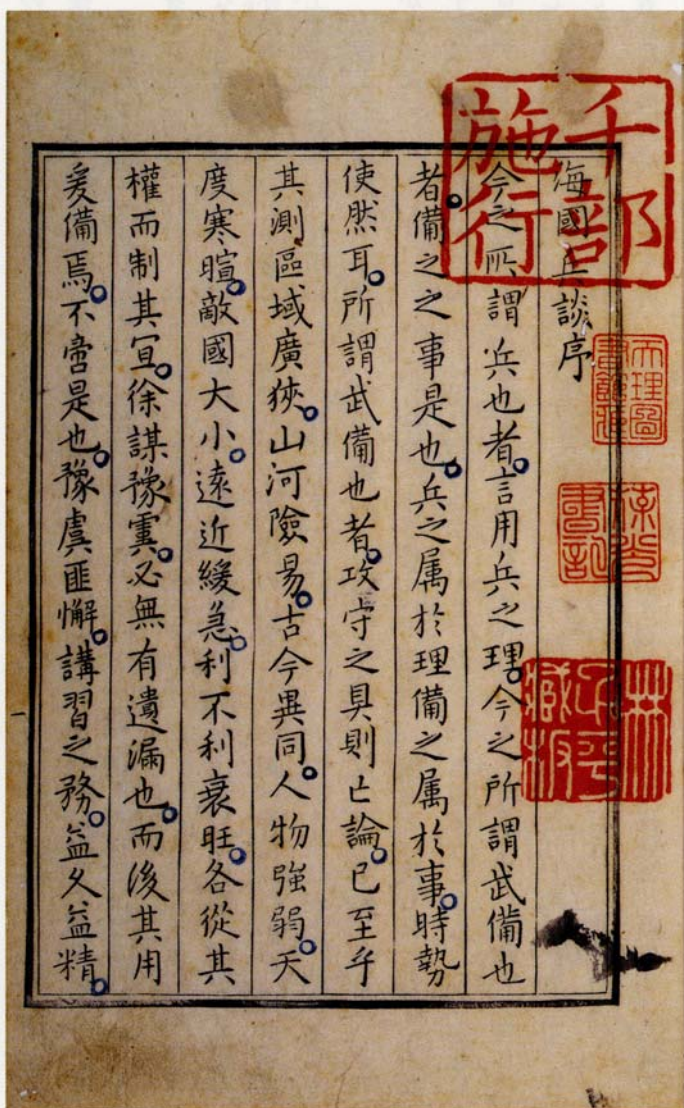 千部施行
海國兵談序
今之所謂兵也者。言用兵之理。今之所謂武備也
者。備之之事是也。兵之属於理備之属於事。時勢
使然耳。所謂武備也者。攻守之具則亡論。已至乎
其測區域廣狹。山河險易。古今異同。人物強弱。天
度寒暄。敵國大小。遠近緩急。利不利衰旺。各從其
權而制其宜。徐謀豫。必無有遺漏也。而後其用
爰備焉。不啻是也。豫虞匪懈。講習之務。益久益精。
天理圖書館藏
林子平藏板